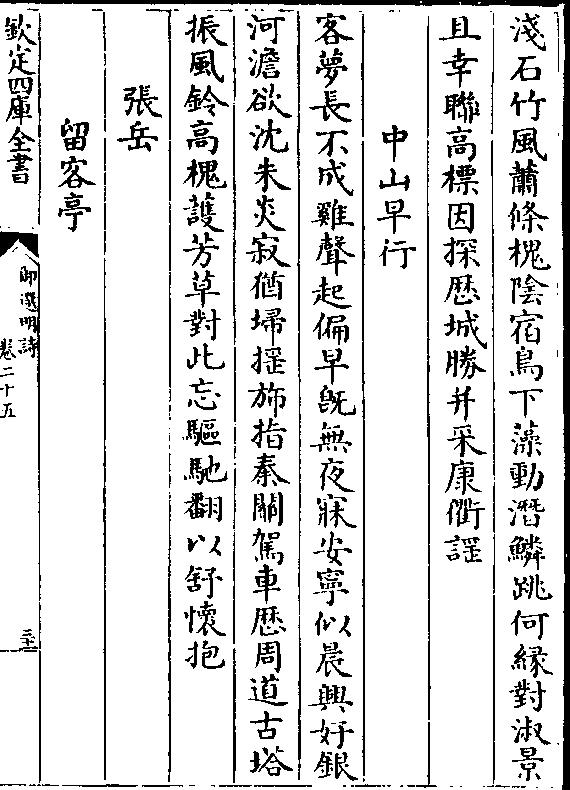 淺石竹風蕭條槐陰宿鳥下藻動潛鱗跳何緣對淑景
且幸聯高標因探歴城勝并采康衢謡
中山早行
客夢長不成雞聲起偏早既無夜寐安寧似晨興好銀
河澹欲沈朱炎寂猶埽揺斾指秦關駕車歴周道古塔
振風鈴高槐護芳草對此忘驅馳翻以舒懷抱
張岳
留客亭
欽定四庫全書
御選明詩
卷二十五
三十